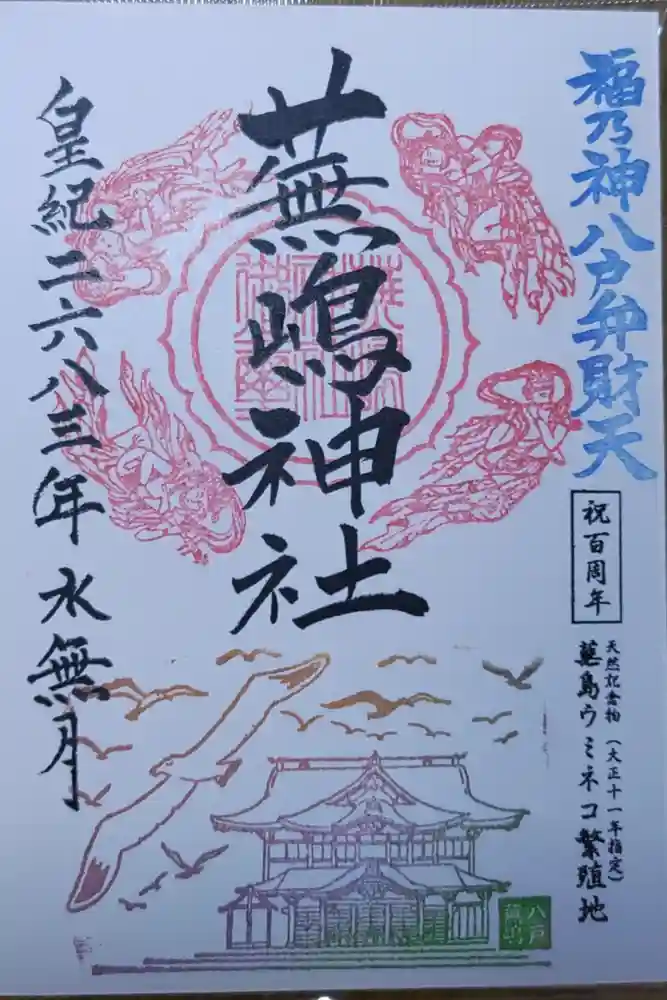 福乃神八戸弁財天
祝百周年
天然記念物（大正十一年指定）
蕪島ウミネコ繁殖地
蕪嶋神社
皇紀二六八三年水無月
八戸